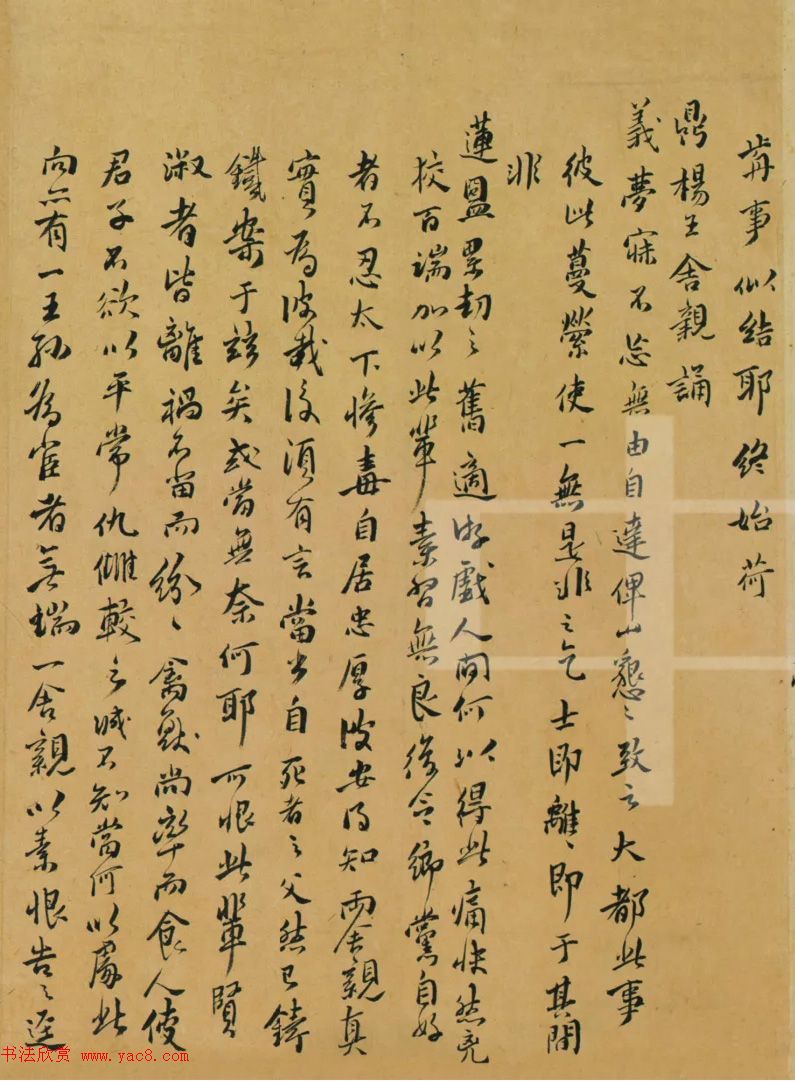 冓事似结耶终始荷
鼎楊王舍親誦
義夢寐不忘無由自達俾山懇〻致言大都此事
彼此蔓縈使一無是非之乞士即離〻即于其間
非
蓮盟累劫之舊適游戲人間何以得此痛快然亮
校百端加以此輩素習無良後令鄉黨自好
者不忍太下慘毒自居忠厚彼安得知兩舍親真
實為彼載後須有言當出自死者之父然已鑄
鐵案于茲矣或當無奈何耶所恨此輩賢
淑者皆離禍不當而紛〻禽獸尚率而食人使
君子不欲以平常仇讎較之誠不知當何以處此
向亦有一王孫為官者無端一舍親以素恨告〻逕
书法欣赏 www.yac8.com